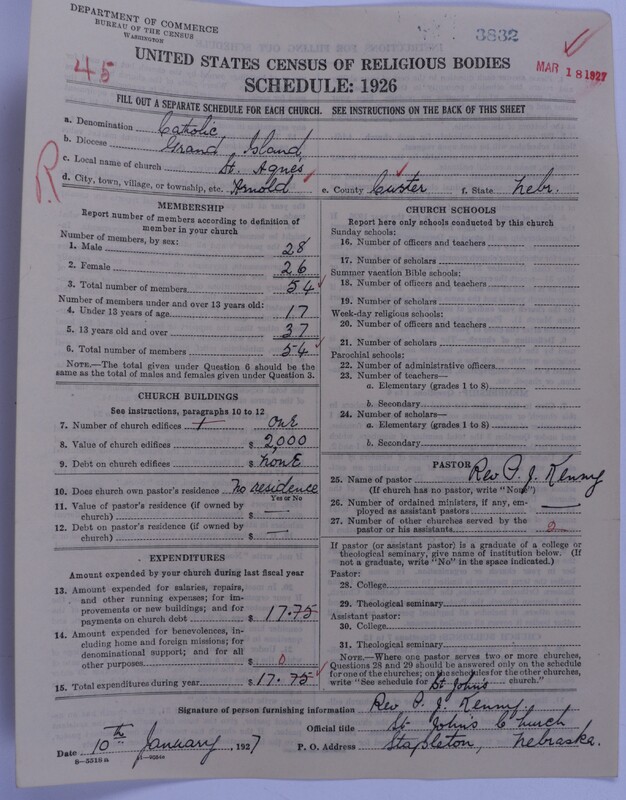 DEPARTMENT OF COMMERCE
BUREAU OF THE CENSUS
WASHINGTON
3832
45
MAR 18 1927
UNITED STATES CENSUS OF RELIGIOUS BODIES
SCHEDULE: 1926
FILL OUT A SEPARATE SCHEDULE FOR EACH CHURCH. SEE INSTRUCTIONS ON THE BACK OF THIS SHEET
a. Denomination Catholic
b. Diocese Grand Island
c. Local name of church St. Agnes
d. City, town, village, or township, etc. Arnold e. County Custer f. State Nebr.
R
MEMBERSHIP
Report number of members according to definition of
member in your church
Number of members, by sex:
1. Male 28
2. Female 26
3. Total number of members 54
Number of members under and over 13 years old:
4. Under 13 years of age 17
5. 13 years old and over 37
6. Total number of members 54
NOTE.—The total given under Question 6 should be
same as the total of males and females given under Question 3.
CHURCH BUILDINGS
See instructions, paragraphs 10 to 12
7. Number of church edifices 1 one
8. Value of church edifices $ 2,000
9. Debt on church edifices $ none
10. Does church own pastor's residence No residence
Yes or No
11. Value of pastor's residence (if owned by
church) $ —
12. Debt on pastor's residence (if owned by
church) $ —
EXPENDITURES
Amount expended by your church during last fiscal year
13. Amount expended for salaries, repairs,
and other running expenses; for im-
provements or new buildings; and for
payments on church debt $ 17.75
14. Amount expended for benevolences, in-
cluding home and foreign missions; for
denominational support; and for all
other purposes $ 0
15. Total expenditures during year $ 17.75
CHURCH SCHOOLS
Report here only schools conducted by this church
Sunday schools:
16. Number of officers and teachers
17. Number of scholars
Summer vacation Bible schools:
18. Number of officers and teachers
19. Number of scholars
Week-day religious schools:
20. Number of officers and teachers
21. Number of scholars
Parochial schools:
22. Number of administrative officers
23. Number of teachers—
a. Elementary (grades 1 to 8)
b. Secondary
24. Number of scholars—
a. Elementary (grades 1 to 8)
b. Secondary
PASTOR
25. Name of pastor Rev P. J. Kenny
(If church has no pastor, write "None")
26. Number of ordained ministers, if any, em-
ployed as assistant pastors —
27. Number of other churches served by the
pastor or his assistants 2
If pastor (or assistant pastor) is a graduate of a college or
theological seminary, give name of institution below. (If
not a graduate, write "No" in the space indicated.)
Pastor:
28. College
29. Theological seminary
Assistant pastor:
30. College
31. Theological seminary
NOTE.—Where one pastor serves two or more churches,
Questions 28 and 29 should be answered only on the schedule
for one of the churches; on the schedules for the other churches,
write "See schedule for St John's church."
Signature of person furnishing information Rev. P. J. Kenny.
Official title St. John's Church
Date 10th January, 1927 P. O. Address Stapleton, Nebraska.
8—5518a